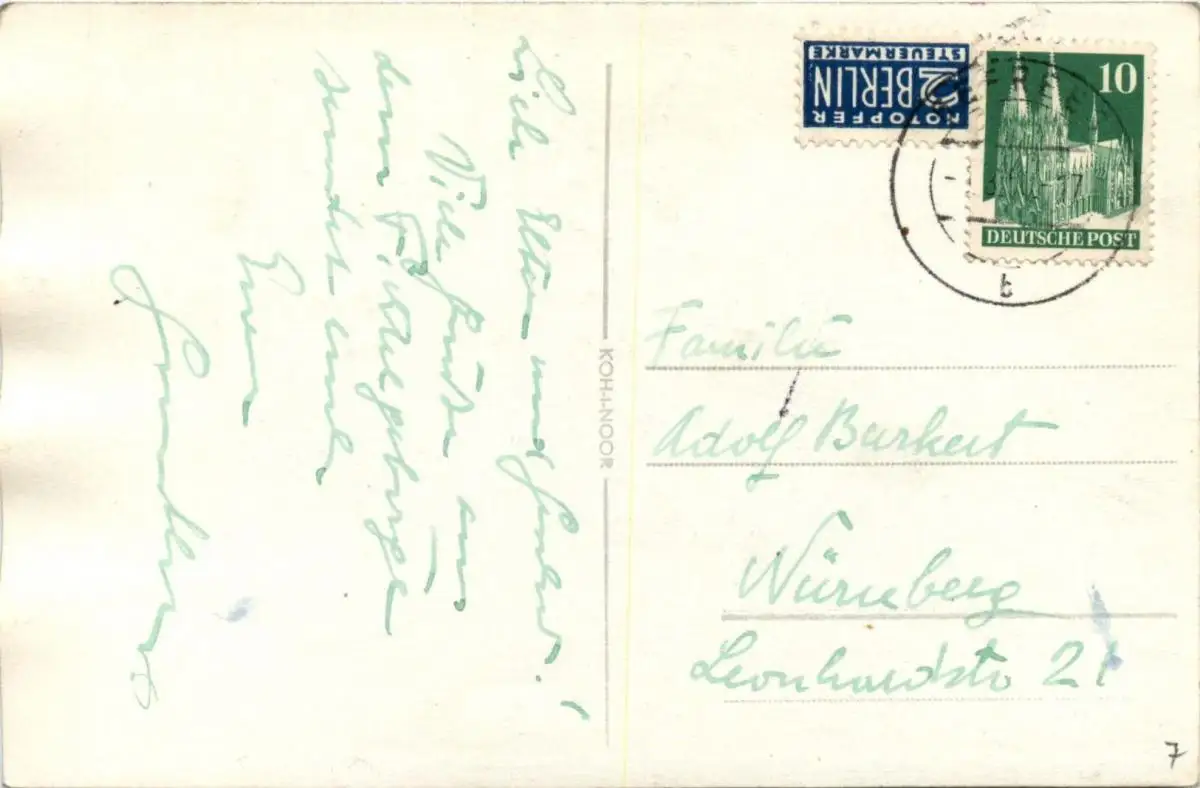 Liebe Eltern und
Viele Grüße aus
dem Fichtelgebirge
sendet euch
Euer
KOH-I-NOOR
NOTOPFER
2 BERLIN
STEUERMARKE
10
DEUTSCHE POST
b
Familie
Adolf Burkert
Nürnberg
Leonhardstr 21
7